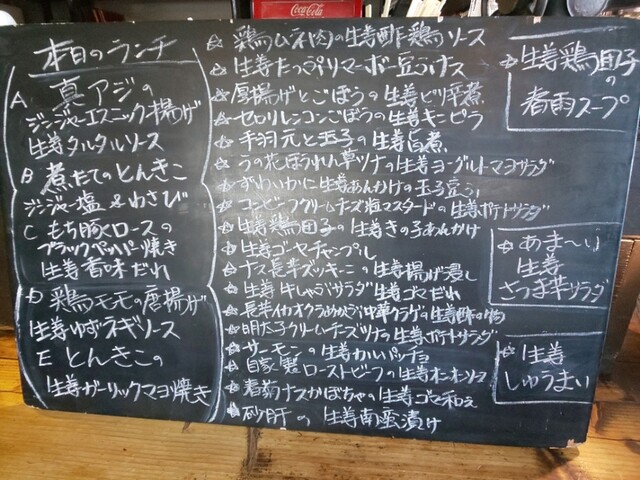 Coca-Cola
本日のランチ
A 真アジの
ジンジャーエスニック揚げ
生姜タルタルソース
B 煮たてのとんきこ
ジンジャー塩&わさび
C もち豚ロースの
ブラックペッパー焼き
生姜香味だれ
D 鶏モモの唐揚げ
生姜ゆずネギソース
E とんきこの
生姜ガーリックマヨ焼き
☆鶏ムネ肉の生姜酢鶏ソース
☆生姜たっぷりマーボー豆ふナス
☆厚揚げとごぼうの生姜ピリ辛煮
☆セロリレンコンごぼうの生姜キンピラ
☆手羽元と玉子の生姜旨煮
☆うの花ほうれん草ツナの生姜ヨーグルトマヨサラダ
☆ずわいかに生姜あんかけの玉子豆ふ
☆コンビーフクリームチーズ塩マスタードの生姜ポテトサラダ
☆生姜鶏団子の生姜きの子あんかけ
☆生姜ゴーヤチャンプル
☆ナス長芋ズッキーニの生姜揚げ浸し
☆生姜牛しゃぶサラダ生姜ゴマだれ
☆長芋イカオクラめかぶ中華クラゲの生姜酢の物
☆明太子クリームチーズツナの生姜ポテトサラダ
☆サーモンの生姜カルパッチョ
☆自家製ローストビーフの生姜オニオンソース
☆春菊ナスかぼちゃの生姜ゴマ和え
砂肝の生姜南蛮漬け
☆生姜鶏団子
の
春雨スープ
☆あま〜い
生姜
さつま芋サラダ
☆生姜
しゅうまい